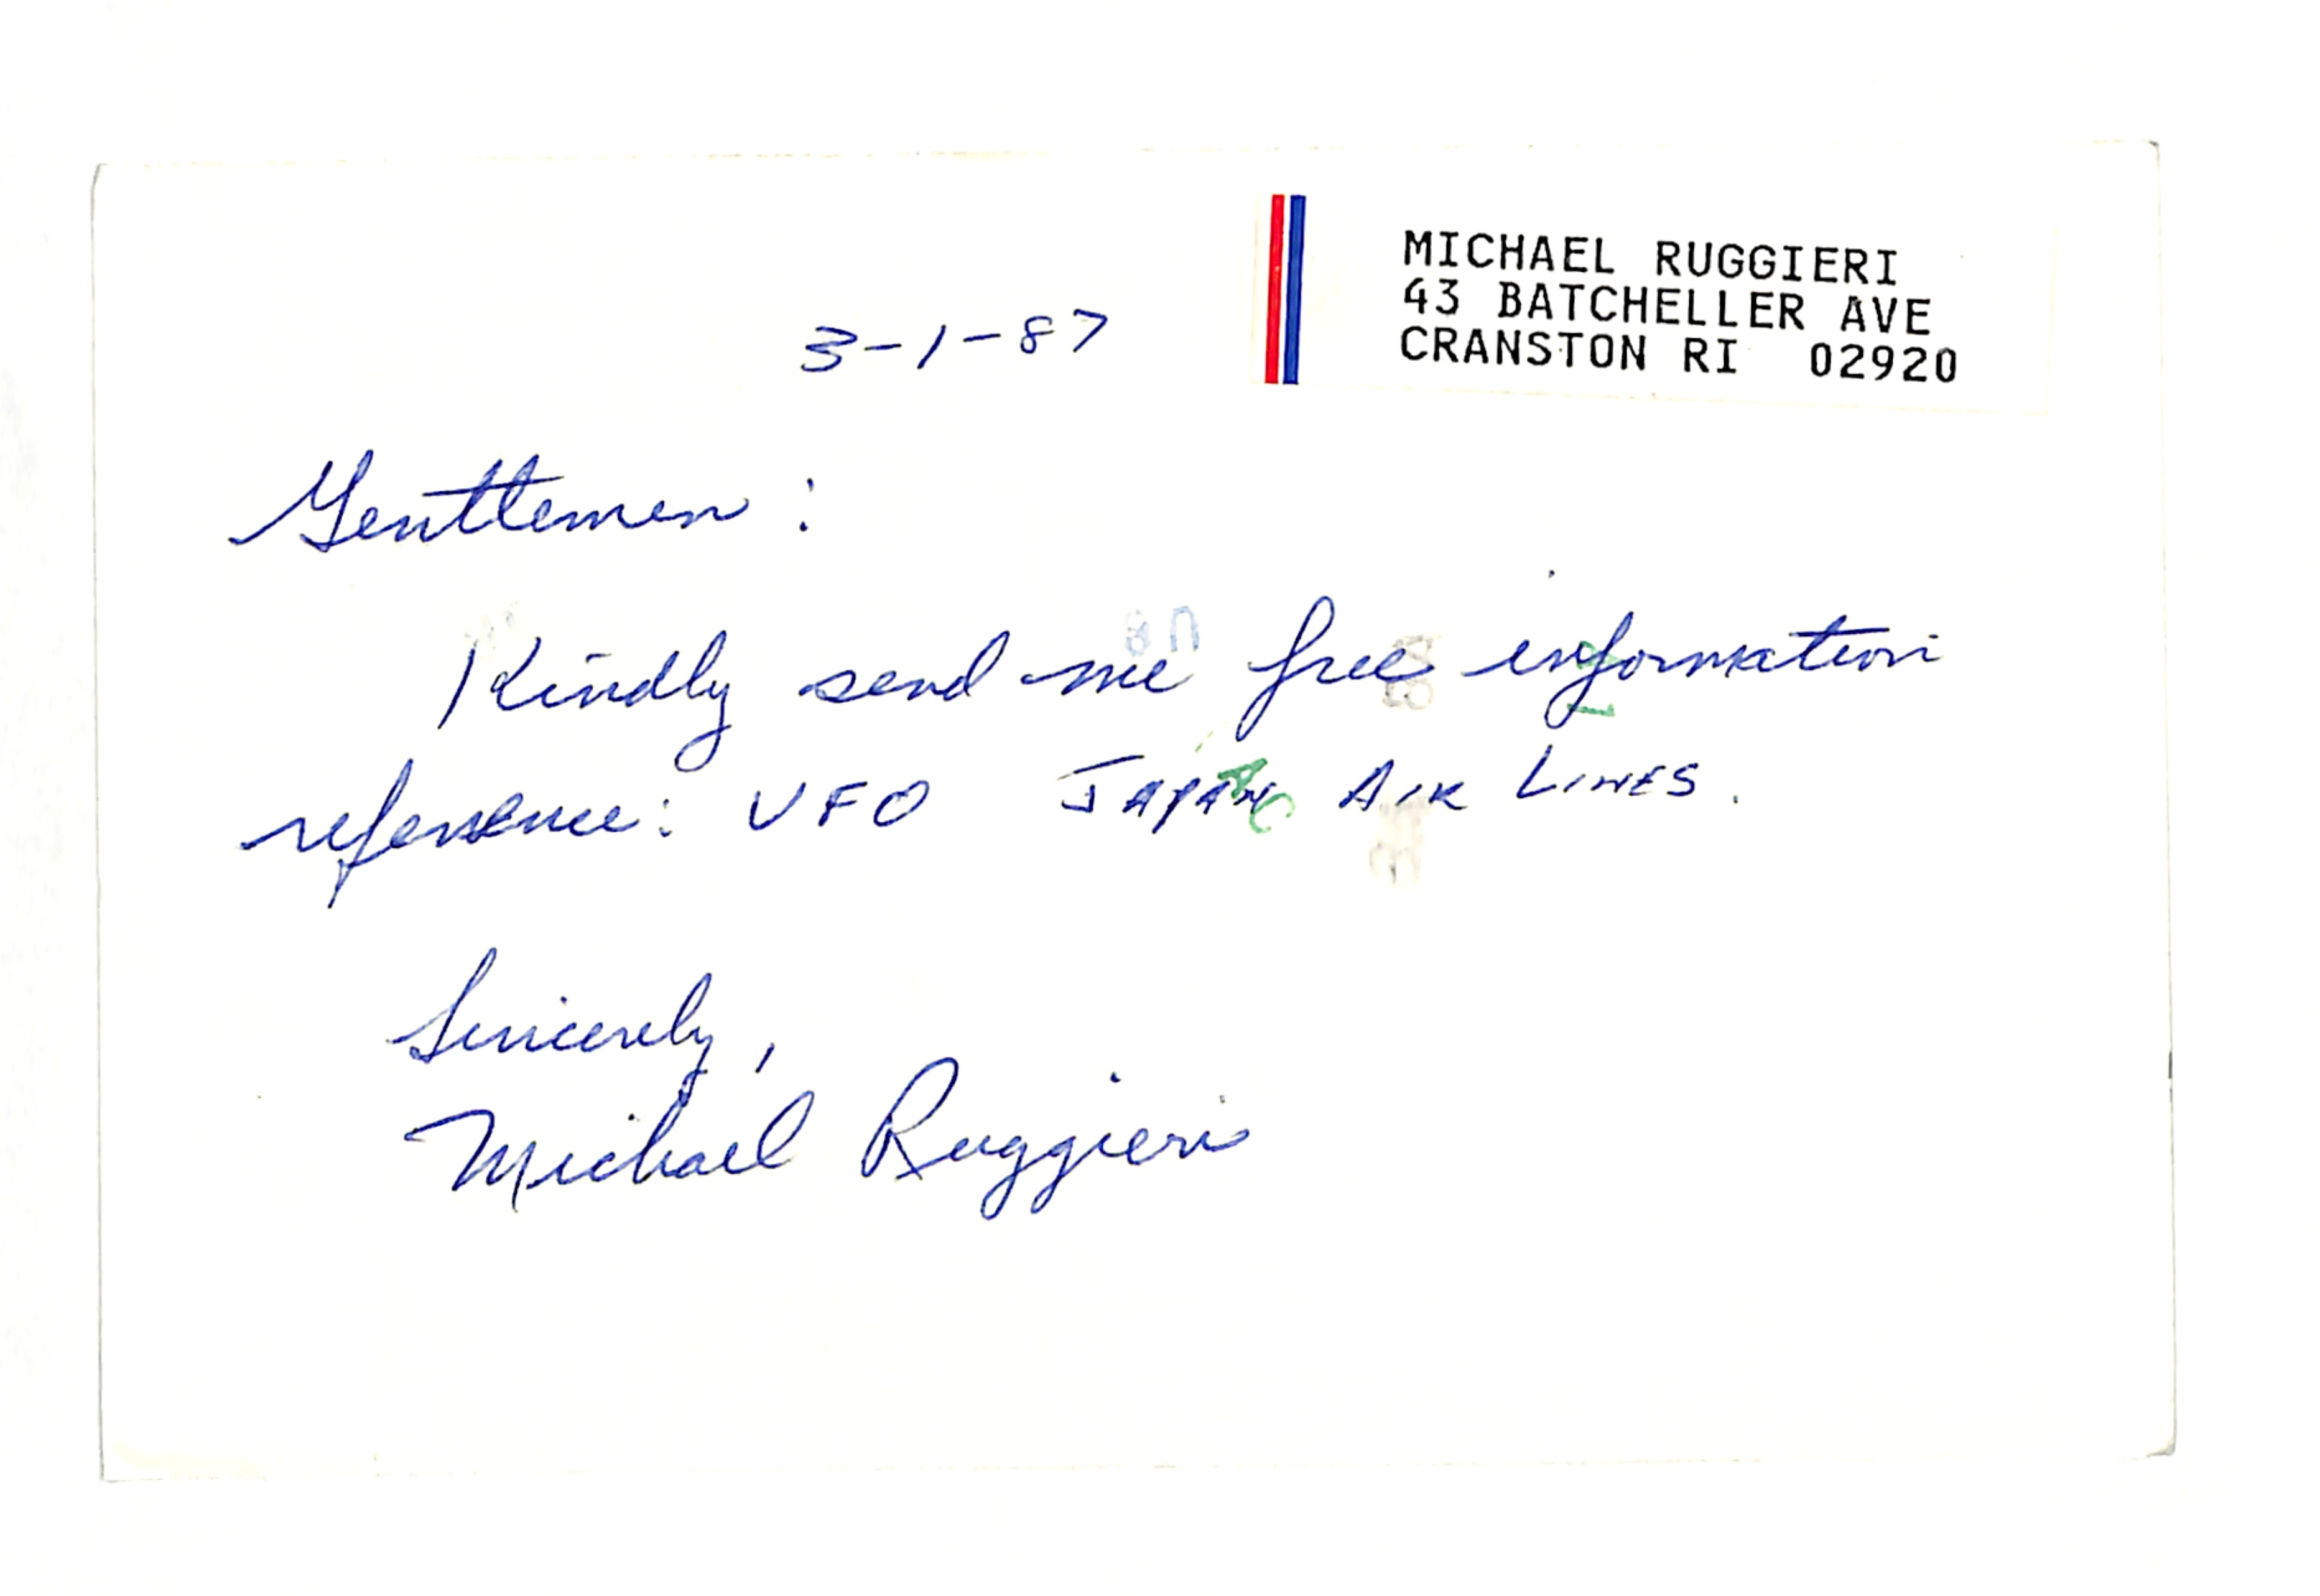 MICHAEL RUGGIERI
43 BATCHELLER AVE
CRANSTON RI 02920
3-1-87
Gentlemen :
Kindly send me free information
reference: UFO JAPAN AIR LINES.
Sincerely,
Michael Ruggieri